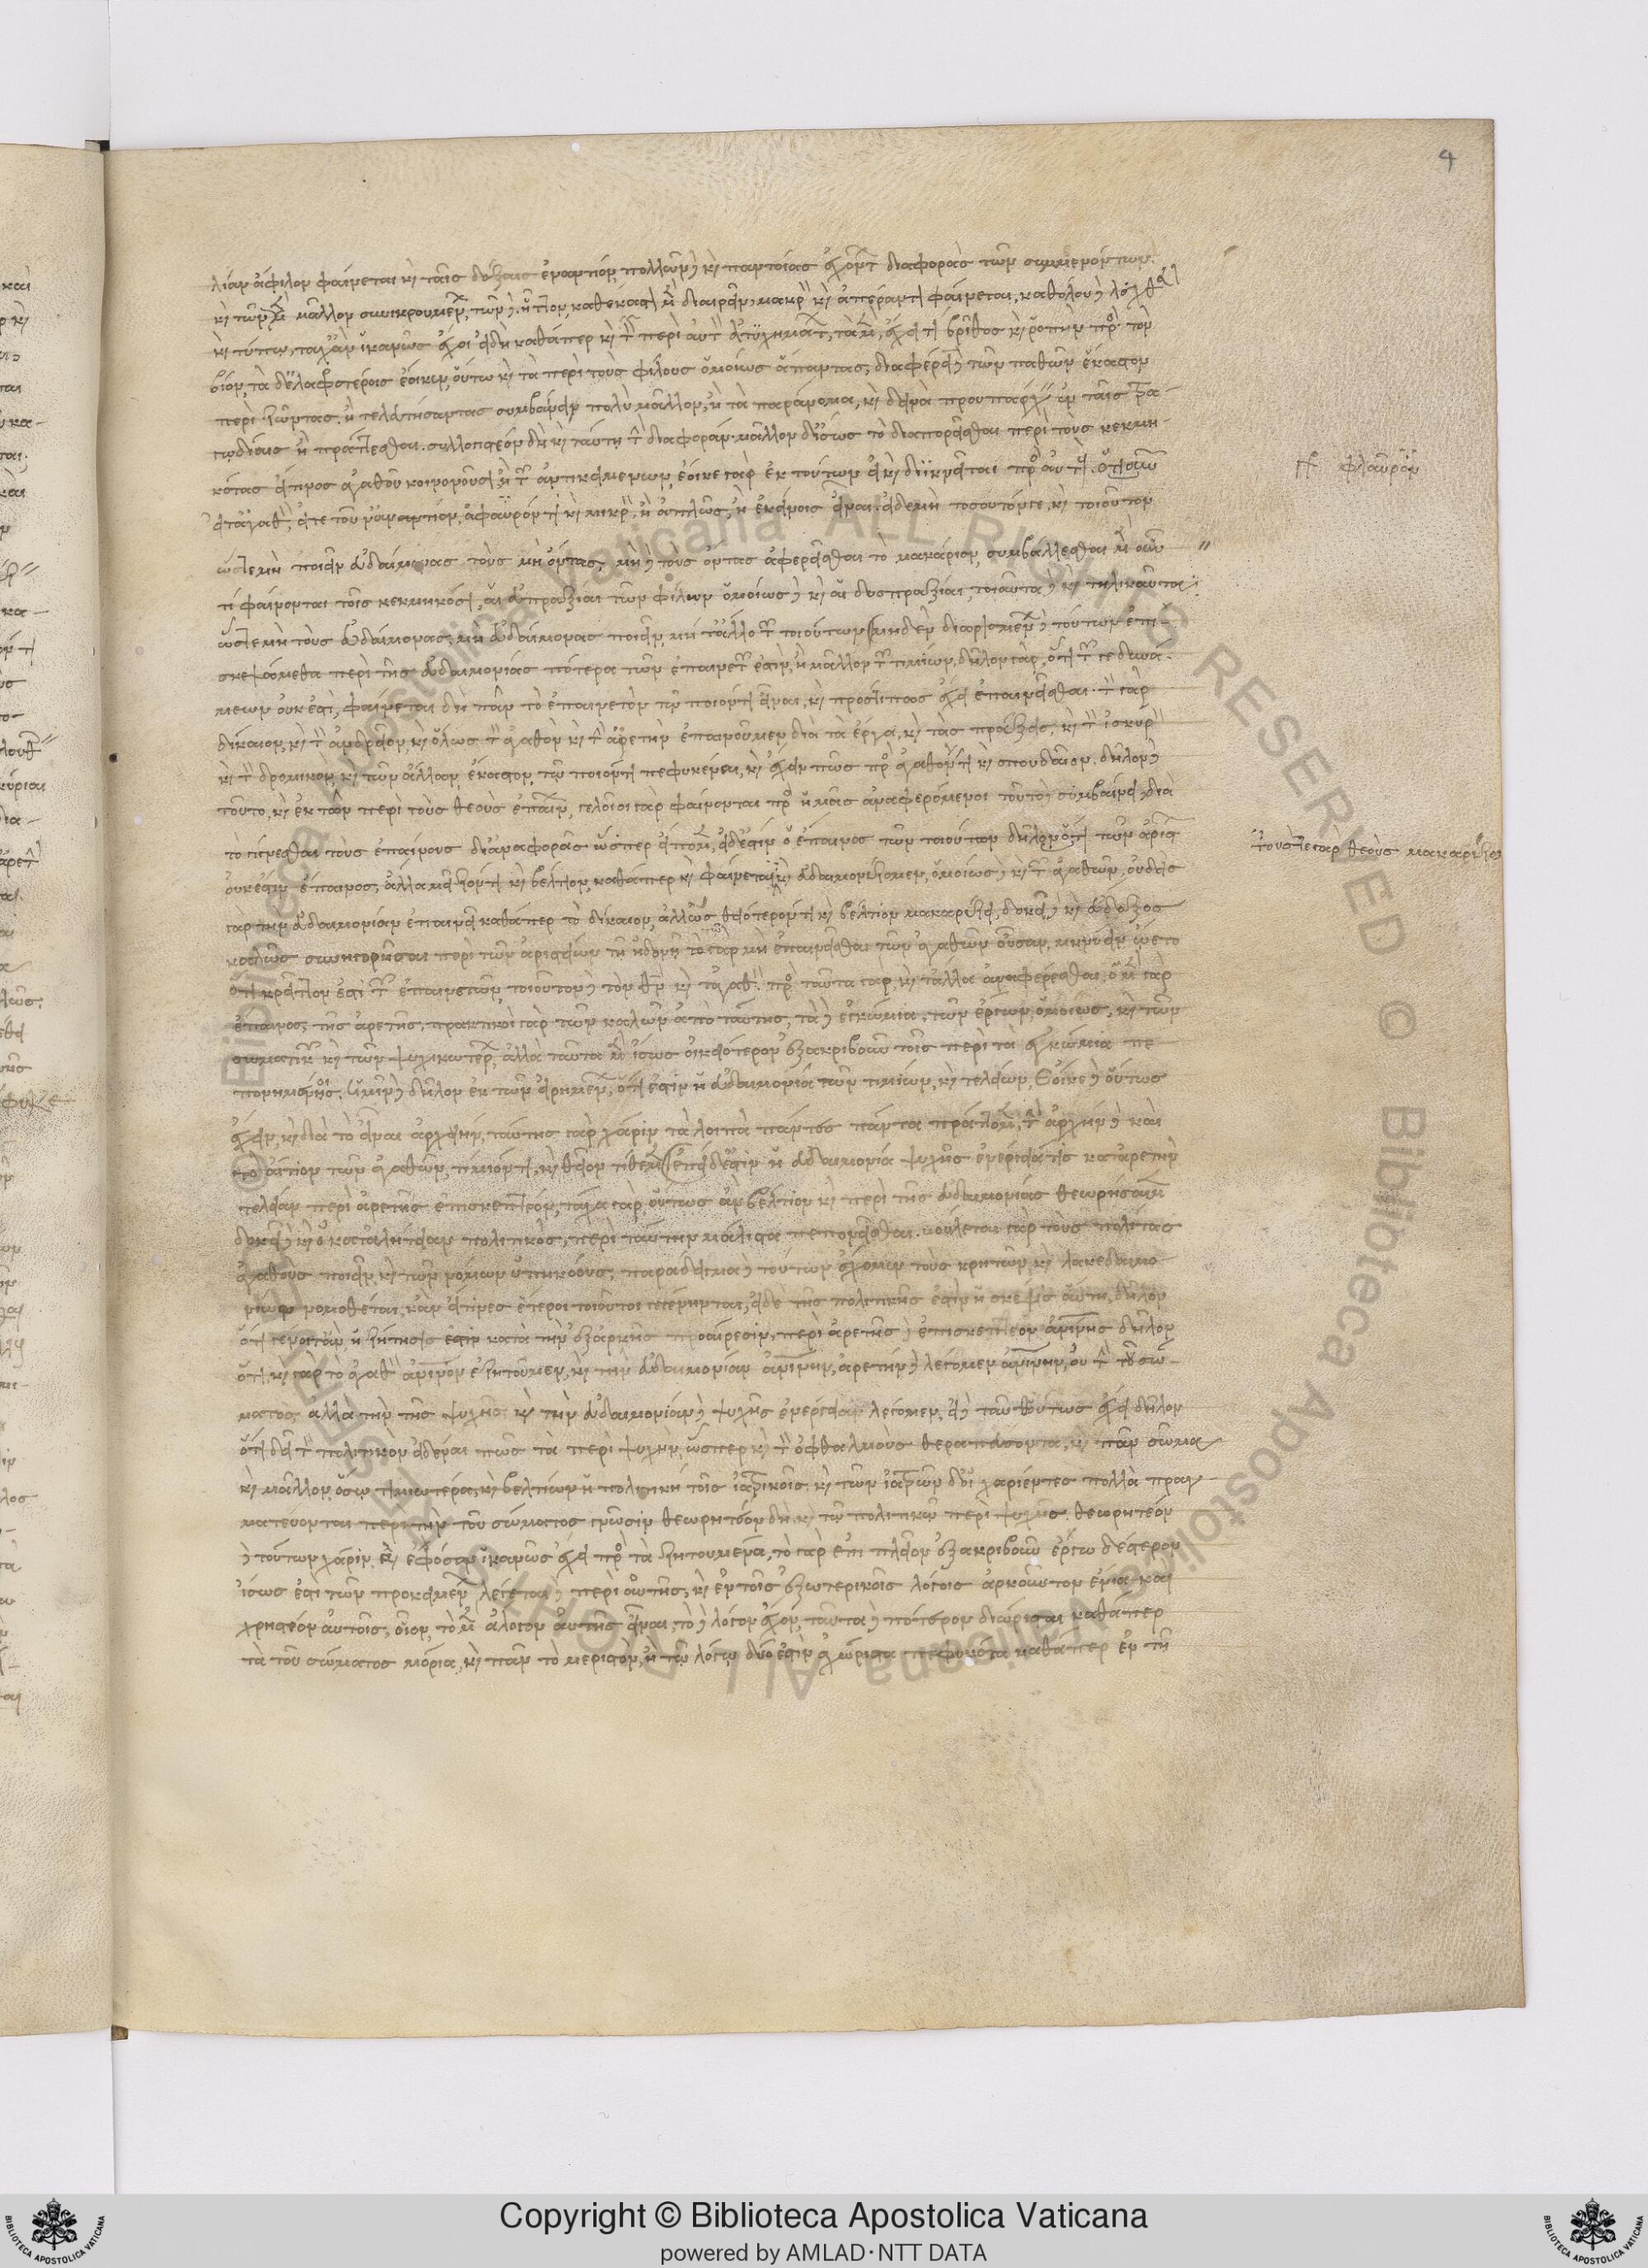 4
λίαν ἄφιλον φαίνεται καὶ ταῖς δόξαις ἐναντίον, πολλῶν δὲ καὶ παντοίας ἐχόντων διαφορὰς τῶν συμβαινόντων
καὶ τῶν μὲν μᾶλλον συνικνουμένων, τῶν δὲ ἧττον, καθέκαστον μὲν διαιρεῖν, μακρὸν καὶ ἀπέραντον φαίνεται, καθόλου δὲ λεχθὲν
καὶ τύπῳ, τάχ' ἂν ἱκανῶς ἔχοι. εἰ δὴ καθάπερ καὶ τῶν περὶ αὐτὸν ἀτυχημάτων, τὰ μὲν, ἔχει τι βρῖθος καὶ ῥοπὴν πρὸς τὸν
βίον, τὰ δ' ἐλαφροτέροις ἔοικεν, οὕτω καὶ τὰ περὶ τοὺς φίλους ὁμοίως ἅπαντας, διαφέρει δὲ τῶν παθῶν ἕκαστον
περὶ ζῶντας, ἢ τελευτήσαντας συμβαίνειν πολὺ μᾶλλον, ἢ τὰ παράνομα, καὶ δεινὰ προυπάρχειν ἐν ταῖς τρα-
γῳδίαις ἢ πράττεσθαι. συλλογιστέον δὴ καὶ ταύτην τὴν διαφοράν. μᾶλλον δ' ἴσως τὸ διαπορεῖσθαι περὶ τοὺς κεκμη-
κότας εἴ τινος ἀγαθοῦ κοινωνοῦσιν ἢ τῶν ἀντικειμένων, ἔοικε γὰρ ἐκ τούτων εἰ καὶ διϊκνεῖται πρὸς αὐτοὺς ὁτιοῦν
εἴτ' ἀγαθὸν, εἴτε τοὐναντίον, ἀφαυρόν τι καὶ μικρὸν, ἢ ἁπλῶς, ἢ ἐκείνοις εἶναι. εἰ δὲ μὴ τοσοῦτόν γε, καὶ τοιοῦτον
ὥστε μὴ ποιεῖν εὐδαίμονας τοὺς μὴ ὄντας, μὴ δὲ τοὺς ὄντας ἀφαιρεῖσθαι τὸ μακάριον, συμβάλλεσθαι μὲν οὖν
τι φαίνονται τοῖς κεκμηκόσιν, αἱ εὐπραξίαι τῶν φίλων ὁμοίως δὲ καὶ αἱ δυσπραξίαι, τοιαῦτα δὲ καὶ τηλικαῦτα
ὥστε μὴ τοὺς εὐδαίμονας, μὴ εὐδαίμονας ποιεῖν, μήτ' ἄλλο τῶν τοιούτων μηδέν. διωρισμένων δὲ τούτων ἐπι-
σκεψώμεθα περὶ τῆς εὐδαιμονίας πότερα τῶν ἐπαινετῶν ἐστὶν, ἢ μᾶλλον τῶν τιμίων, δῆλον γὰρ, ὅτι τῶν γε δυνά-
μεων οὐκ ἔστι, φαίνεται δὴ πᾶν τὸ ἐπαινετὸν τῷ ποιόν τι εἶναι, καὶ πρός τί πως ἔχειν ἐπαινεῖσθαι. τὸν γὰρ
δίκαιον, καὶ τὸν ἀνδρεῖον, καὶ ὅλως τὸν ἀγαθὸν καὶ τὴν ἀρετὴν ἐπαινοῦμεν διὰ τὰ ἔργα, καὶ τὰς πράξεις, καὶ τὸν ἰσχυρὸν
καὶ τὸν δρομικὸν, καὶ τῶν ἄλλων, ἕκαστον, τῷ ποιόν τι πεφυκέναι, καὶ ἔχειν πως πρὸς ἀγαθόν τι καὶ σπουδαῖον. δῆλον δὲ
τοῦτο, καὶ ἐκ τῶν περὶ τοὺς θεοὺς ἐπαίνων, γελοῖοι γὰρ φαίνονται πρὸς ἡμᾶς ἀναφερόμενοι τοῦτο δὲ συμβαίνει, διὰ
τὸ γίνεσθαι τοὺς ἐπαίνους δι' ἀναφορᾶς ὥσπερ εἴπομεν, εἰ δ' ἐστὶν ὁ ἔπαινος τῶν τοιούτων δῆλον ὅτι τῶν ἀρίστων
οὐκ ἔστιν ἔπαινος, ἀλλὰ μεῖζόν τι καὶ βέλτιον, καθάπερ καὶ φαίνεται καὶ εὐδαιμονίζομεν, ὁμοίως δὲ καὶ τῶν ἀγαθῶν, οὐδεὶς
γὰρ τὴν εὐδαιμονίαν ἐπαινεῖ καθάπερ τὸ δίκαιον, ἀλλ' ὡς θειότερόν τι καὶ βέλτιον μακαρίζει, δοκεῖ δὲ καὶ εὔδοξος
καλῶς συνηγορῆσαι περὶ τῶν ἀριστείων τῇ ἡδονῇ τὸ γὰρ μὴ ἐπαινεῖσθαι τῶν ἀγαθῶν οὖσαν, μηνύειν ᾤετο
ὅτι κρεῖττον ἐστὶ τῶν ἐπαινετῶν, τοιοῦτον δὲ τὸν θεὸν καὶ τἀγαθὸν. πρὸς ταῦτα γὰρ, καὶ τἆλλα ἀναφέρεσθαι. ὁ μὲν γὰρ
ἔπαινος, τῆς ἀρετῆς, πρακτικοὶ γὰρ τῶν καλῶν ἀπὸ ταύτης, τὰ δὲ ἐγκώμια, τῶν ἔργων, ὁμοίως, καὶ τῶν
σωματικῶν καὶ τῶν ψυχικωτέρων, ἀλλὰ ταῦτα μὲν ἴσως οἰκειότερον ἐξακριβοῦν τοῖς περὶ τὰ ἐγκώμια πε-
πονημένοις. ἡμῖν δὲ δῆλον ἐκ τῶν εἰρημένων, ὅτι ἐστὶν ἡ εὐδαιμονία τῶν τιμίων, καὶ τελείων, ἔοικε δὲ οὕτως
ἔχειν, καὶ διὰ τὸ εἶναι ἀρχὴν, ταύτης γὰρ χάριν τὰ λοιπὰ πάντες πάντα πράττομεν, τὴν ἀρχὴν δὲ καὶ
τὸ αἴτιον τῶν ἀγαθῶν, τίμιόν τι, καὶ θεῖον τίθεμεν ἐπεὶ δ' ἐστὶν ἡ εὐδαιμονία ψυχῆς ἐνέργειά τις κατ' ἀρετὴν
τελείαν περὶ ἀρετῆς ἐπισκεπτέον, τάχα γὰρ, οὕτως ἂν βέλτιον καὶ περὶ τῆς εὐδαιμονίας θεωρήσαιμεν
δοκεῖ δὲ καὶ ὁ κατ' ἀλήθειαν πολιτικὸς, περὶ ταύτην μάλιστα πεπονεῖσθαι. βούλεται γὰρ τοὺς πολίτας
ἀγαθοὺς ποιεῖν, καὶ τῶν νόμων ὑπηκόους, παράδειγμα δὲ τούτων ἔχομεν τοὺς κρητῶν, καὶ λακεδαιμο-
νίων νομοθέτας, κἂν εἴ τινες ἕτεροι τοιοῦτοι γεγένηνται, εἰ δὲ τῆς πολιτικῆς ἐστὶν ἡ σκέψις αὕτη, δῆλον
ὅτι γένοιτ' ἂν, ἡ ζήτησις ἐστὶν κατὰ τὴν ἐξ ἀρχῆς προαίρεσιν, περὶ ἀρετῆς δὲ ἐπισκεπτέον ἀνθρωπίνης δῆλον
ὅτι, καὶ γὰρ τὸ ἀγαθὸν ἀνθρώπινον ἐζητοῦμεν, καὶ τὴν εὐδαιμονίαν ἀνθρωπίνην, ἀρετὴν δὲ λέγομεν ἀνθρωπίνην, οὐ τὴν τοῦ σώ-
ματος, ἀλλὰ τὴν τῆς ψυχῆς. καὶ τὴν εὐδαιμονίαν δὲ ψυχῆς ἐνέργειαν λέγομεν, εἰ δὲ ταῦθ' οὕτως ἔχει δῆλον
ὅτι δεῖ τὸν πολιτικὸν εἰδέναι πῶς τὰ περὶ ψυχὴν, ὥσπερ καὶ τὸν ὀφθαλμοὺς θεραπεύσοντα, καὶ πᾶν σῶμα
καὶ μᾶλλον, ὅσῳ τιμιωτέρα, καὶ βελτίων ἡ πολιτικὴ τῆς ἰατρικῆς. καὶ τῶν ἰατρῶν δ' οἱ χαρίεντες πολλὰ πραγ-
ματεύονται περὶ τὴν τοῦ σώματος γνῶσιν, θεωρητέον δὴ καὶ τῷ πολιτικῷ περὶ ψυχῆς. θεωρητέον
δὲ τούτων χάριν. καὶ ἐφ' ὅσον ἱκανῶς ἔχει πρὸς τὰ ζητούμενα, τὸ γὰρ ἐπὶ πλεῖον ἐξακριβοῦν ἐργωδέστερον
ἴσως ἐστὶ τῶν προκειμένων λέγεται δὲ περὶ αὐτῆς, καὶ ἐν τοῖς ἐξωτερικοῖς λόγοις ἀρκούντως ἔνια, καὶ
χρηστέον αὐτοῖς, οἷον, τὸ μὲν ἄλογον αὐτῆς εἶναι, τὸ δὲ λόγον ἔχον, ταῦτα δὲ πότερον διώρισται καθάπερ
τὰ τοῦ σώματος μόρια, καὶ πᾶν τὸ μεριστὸν, ἢ τῷ λόγῳ δύο ἐστὶν ἀχώριστα πεφυκότα καθάπερ ἐν τῇ
φλαῦρον
τούς τε γὰρ θεοὺς μακαρίζομεν
Copyright © Biblioteca Apostolica Vaticana
powered by AMLAD·NTT DATA